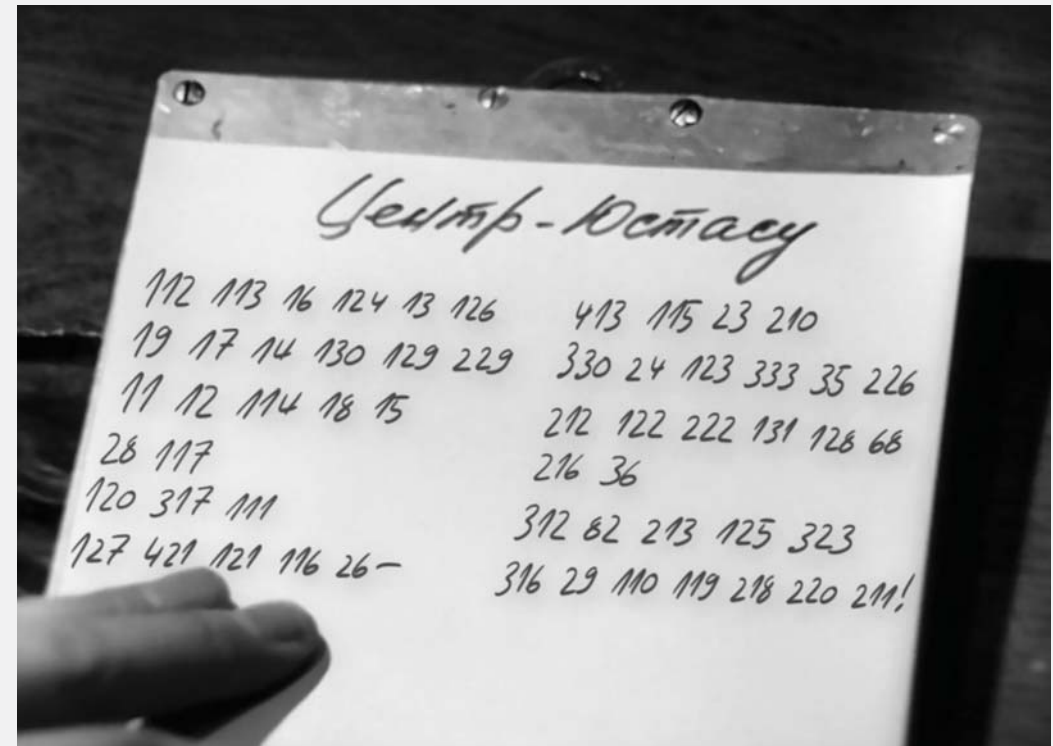 Центр-Юстасу
112 113 16 124 13 126
19 17 14 130 129 229
11 12 114 18 15
28 117
120 317 111
127 421 121 116 26–
413 115 23 210
330 24 123 333 35 226
212 122 222 131 128 68
216 36
312 82 213 125 323
316 29 110 119 218 220 211!